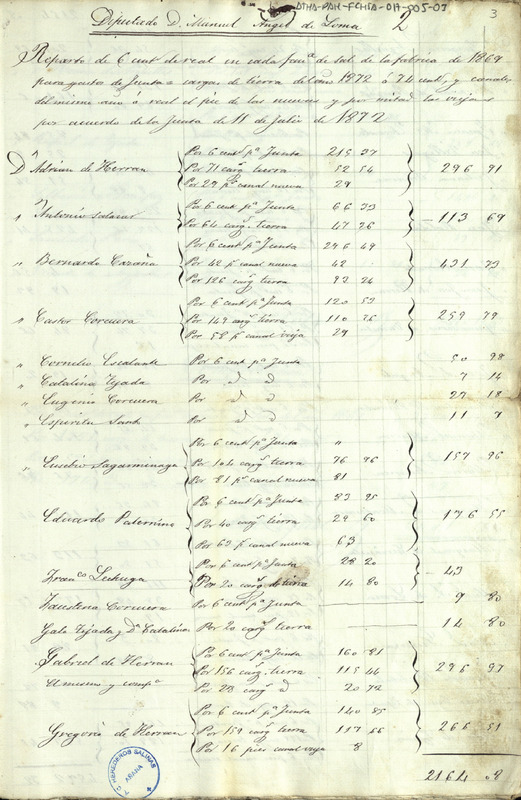 ATHA-DAH-FCHSA-017-005-07
Diputado D. Manuel Angel de Loma 2 3
Reparto de 6 cent de real en cada fanª de sal de la fabrica de 1869
para gastos de Junta = cargas de tierra del año 1872 á 74 cent, y canales
del mismo año á real el pie de las nuevas y por mitad las viejas
por acuerdo de la Junta de 11 de Julio de 1872
D Adrian de Herran Por 6 cent pª Junta 215 37
Por 71 carg tierra 52 54 296 91
Por 29 p canal nueva 29
" Antonio Salazar Por 6 cent pª Junta 66 33
Por 64 carg tierra 47 36 113 69
" Bernardo Por 6 cent pª Junta 296 49
Por 42 p canal nueva 42 431 73
Por 126 carg tierra 93 24
" Castor Corcuera Por 6 cent pª Junta 120 53
Por 149 carg tierra 110 26 259 79
Por 58 p canal vieja 29
" Cornelio Escalante Por 6 cent pª Junta 50 98
" Catalina Tejada Por d d 7 14
" Eugenio Corcuera Por d d 27 18
" Espiritu Santo Por d d 11 7
" Eusebio Sagarminaga Por 6 cent pª Junta "
Por 104 carg tierra 76 96 157 96
Por 81 p canal nueva 81
Eduardo Paternina Por 6 cent pª Junta 83 95
Por 40 carg tierra 29 60 176 55
Por 63 p canal nueva 63
Franco Lechuga Por 6 cent pª Junta 28 20
Por 20 carg de tierra 14 80 43
Faustina Corcuera Por 6 cent pª Junta 9 80
Galo Tejada y Dª Catalina Por 20 carg tierra 14 80
Gabriel de Herran Por 6 cent pª Junta 160 81
Por 156 carg tierra 115 44 296 97
El mismo y compª Por 28 carg d 20 72
Gregorio de Herran Por 6 cent pª Junta 140 85
Por 159 carg tierra 117 66 266 51
Por 16 pies canal vieja 8
2164 08
HEREDEROS SALINAS
AÑANA